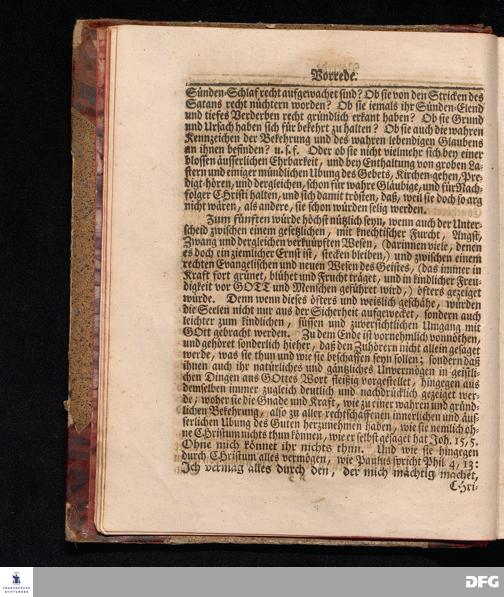 Vorrede.
Sünden-Schlaf recht aufgewachet sind? Ob sie von den Stricken des
Satans recht nüchtern worden? Ob sie iemals ihr Sünden-Elend
und tiefes Verderben recht gründlich erkant haben? Ob sie Grund
und Ursach haben sich für bekehrt zu halten? Ob sie auch die wahren
Kennzeichen der Bekehrung und des wahren lebendigen Glaubens
an ihnen befinden? u. s. f. Oder ob sie nicht vielmehr sich bey einer
blossen äusserlichen Ehrbarkeit, und bey Enthaltung von groben La-
stern und einiger mündlichen Ubung des Gebets, Kirchen-gehen, Pre-
digt-hören, und dergleichen, schon für wahre Gläubige, und für Nach-
folger CHristi halten, und sich damit trösten, daß, weil sie doch so arg
nicht wären, als andere, sie schon würden selig werden.
Zum fünften würde höchst nützlich seyn, wenn auch der Unter-
scheid zwischen einem gesetzlichen, mit knechtischer Furcht, Angst,
Zwang und dergleichen verknüpften Wesen, (darinnen viele, denen
es doch ein ziemlicher Ernst ist, stecken bleiben,) und zwischen einem
rechten Evangelischen und neuen Wesen des Geistes, (das immer in
Kraft fort grünet, blühet und Frucht träget, und in kindlicher Freu-
digkeit vor GOTT und Menschen geführet wird,) öfters gezeiget
würde. Denn wenn dieses öfters und weislich geschähe, würden
die Seelen nicht nur aus der Sicherheit aufgewecket, sondern auch
leichter zum kindlichen, süssen und zuversichtlichen Umgang mit
GOtt gebracht werden. Zu dem Ende ist vornehmlich vonnöthen,
und gehöret sonderlich hieher, daß den Zuhörern nicht allein gesaget
werde, was sie thun und wie sie beschaffen seyn sollen; sondern daß
ihnen auch ihr natürliches und gäntzliches Unvermögen in geistli-
chen Dingen aus GOttes Wort fleißig vorgestellet, hingegen aus
demselben immer zugleich deutlich und nachdrücklich gezeiget wer-
de, woher sie die Gnade und Kraft, wie zu einer wahren und gründ-
lichen Bekehrung, also zu aller rechtschaffenen innerlichen und äus-
serlichen Ubung des Guten herzunehmen haben, wie sie nemlich oh-
ne CHristum nichts thun können, wie er selbst gesaget hat Joh. 15, 5.
Ohne mich könnet ihr nichts thun. Und wie sie hingegen
durch CHristum alles vermögen, wie Paulus spricht Phil. 4, 13:
Ich vermag alles durch den, der mich mächtig machet,
CHri-
FRANCKESCHE
STIFTUNGEN
DFG